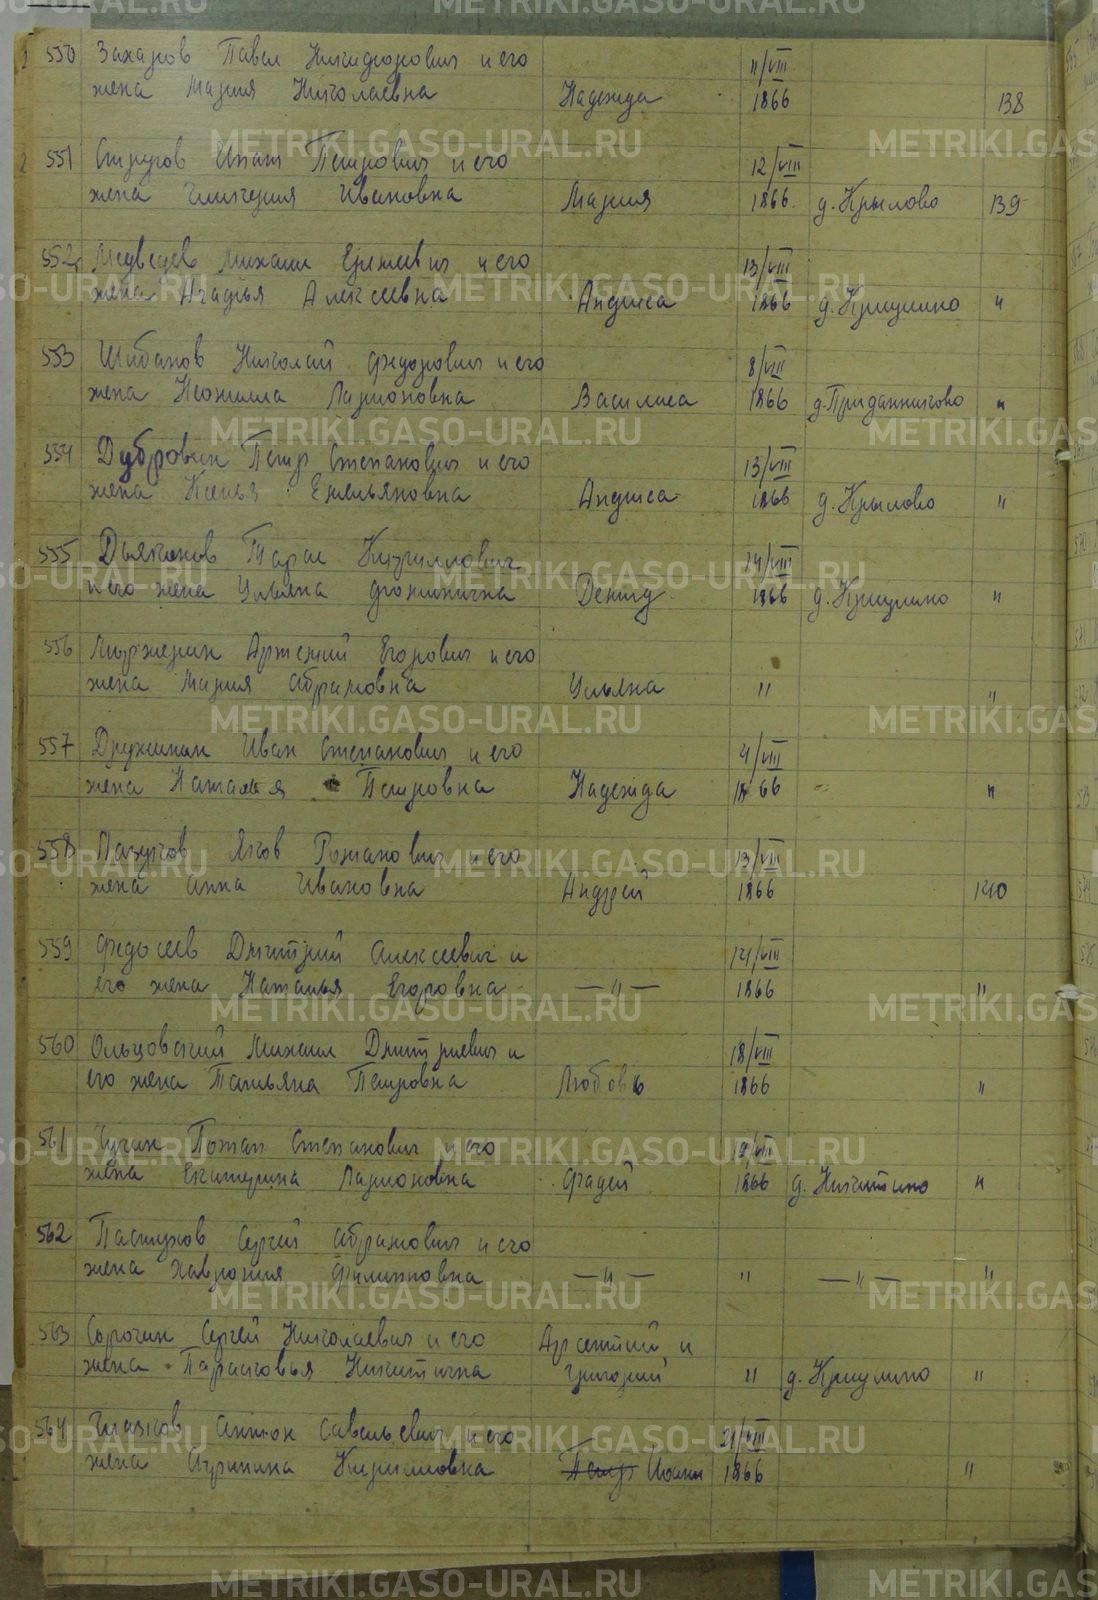 METRIKI.GASO-URAL.RU
550 Захаров Павел Никифорович и его 11/VIII
жена Мария Николаевна Надежда 1866 138
551 Стругов Ипат Петрович и его 12/VIII
жена Гликерия Ивановна Мария 1866 д. Крылово 139
552 Медведев Михаил Еремевич и его 13/VIII
жена Агафья Алексеевна Анфиса 1866 д. Криулино "
553 Шибанов Николай Федорович и его 8/VIII
жена Неонилла Ларионовна Василиса 1866 д. Приданниково "
554 Дубровин Петр Степанович и его 13/VIII
жена Емельяновна Анфиса 1866 д. Крылово "
555 Дьяконов Тарас Кириллович 14/VIII
и его жена Ульяна Фоминична Демид 1866 д. Криулино "
556 Артемий Егорович и его
жена Мария Абрамовна Ульяна " "
557 Дружинин Иван Степанович и его 4/VIII
жена Наталья Петровна Надежда 1866 "
558 Яков Романович и его 13/VIII
жена Анна Ивановна Андрей 1866 140
559 Федосеев Дмитрий Алексеевич и 14/VIII
его жена Наталья Егоровна — " — 1866 "
560 Ольховский Михаил Дмитриевич и 18/VIII
его жена Татьяна Петровна Любовь 1866 "
561 Потап Степанович и его 19/VIII
жена Екатерина Ларионовна Фадей 1866 д. Никитино "
562 Пастухов Сергей Абрамович и его
жена Хаврония Филипповна — " — " — " — "
563 Сорокин Сергей Николаевич и его Арсентий и
жена Парасковья Никитична Григорий " д. Криулино "
564 Глазков Антон Савельевич и его 21/VIII
жена Ириниа Кирилловна Петр Иоанн 1866 "